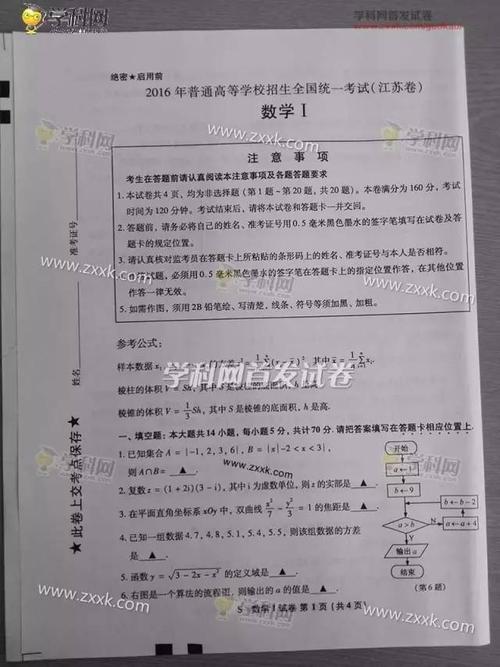 学科网
学科网首发试卷
绝密★启用前
2016年普通高等学校招生全国统一考试(江苏卷)
数学Ⅰ
学科网
www.zxxk.com
注意事项
考生在答题前请认真阅读本注意事项及各题答题要求
1.本试卷共4页,均为非选择题(第1题~第20题,共20题)。本卷满分为160分,考试
时间为120分钟。考试结束后,请将本试卷和答题卡一并交回。
2.答题前,请务必将自己的姓名、准考证号用0.5毫米黑色墨水的签字笔填写在试卷及答
题卡的规定位置。
3.请认真核对监考员在答题卡上所粘贴的条形码上的姓名、准考证号与本人是否相符。
试题,必须用0.5毫米黑色墨水的签字笔在答题卡上的指定位置作答,在其他位置
作答一律无效。
5.如需作图,须用2B铅笔绘、写清楚,线条、符号等须加黑、加粗。
准考证号
姓名
★此卷上交考点保存★
参考公式:
样本数据x₁, 方差s²=1/n Σ(xᵢ-x̄)²,其中x̄=1/n Σxᵢ.
棱柱的体积V=Sh,其中S是棱柱的底面积,h是高.
棱锥的体积V=1/3Sh,其中S是棱锥的底面积,h是高.
学科网首发试卷
一、填空题:本大题共14小题,每小题5分,共计70分.请把答案填写在答题卡相应位置上.
1.已知集合A={-1,2,3,6},B={x|-2<x<3},
则A∩B=▲.
2.复数z=(1+2i)(3-i),其中i为虚数单位,则z的实部是▲.
3.在平面直角坐标系xOy中,双曲线x²/7-y²/3=1的焦距是▲.
4.已知一组数据4.7,4.8,5.1,5.4,5.5,则该组数据的方差
是▲.
5.函数y=√3-2x-x²的定义域是▲.
6.右图是一个算法的流程图,则输出的a的值是▲.
开始
a←1
b←9
a>b
N
b←b-2
a←a+4
Y
输出a
结束
(第6题)
数学Ⅰ试卷 第1页(共4页)
www.zxxk.com